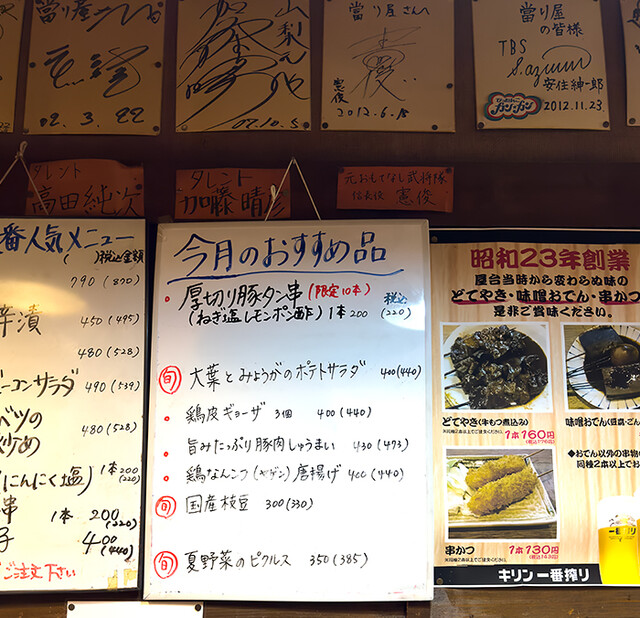 當り屋
02.3.22
山梨
07.10.5
當り屋さんへ
憲俊
2012.6.18
當り屋
の皆様
TBS
S.azumi
安住紳一郎
2012.11.23.
タレント
高田純次
タレント
加藤晴彦
元おもてなし武将隊
信長役 憲俊
番人気メニュー
(税込金額)
790 (870)
漬
450 (495)
480 (528)
ーコンサラダ 490 (539)
ベツの
炒め 480 (528)
(にんにく塩) 1本200
(220)
串 1本 200
(220)
子 400
(440)
ご注文下さい
今月のおすすめ品
・厚切り豚タン串 (限定10本) 税込
(ねぎ塩レモンポン酢) 1本200 (220)
旬 大葉とみょうがのポテトサラダ 400(440)
・鶏皮ギョーザ 3個 400(440)
・旨みたっぷり豚肉しゅうまい 430(473)
・鶏なんこつ(ヤゲン)唐揚げ 400(440)
旬 国産枝豆 300(330)
旬 夏野菜のピクルス 350(385)
昭和23年創業
屋台当時から変わらぬ味の
どてやき・味噌おでん・串かつ
是非ご賞味ください。
どてやき(牛もつ煮込み)
※同種2本以上でご注文ください。
1本160円
(税込176円)
味噌おでん(豆腐・ごん
◆おでん以外の串物
同種2本以上で
串かつ
※同種2本以上でご注文ください。
1本130円
(税込143円)
キリン一番搾り